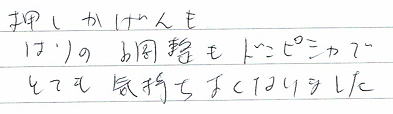 押しかげんも
はりの調整もドンピシャで
とても気持ちよくなりました